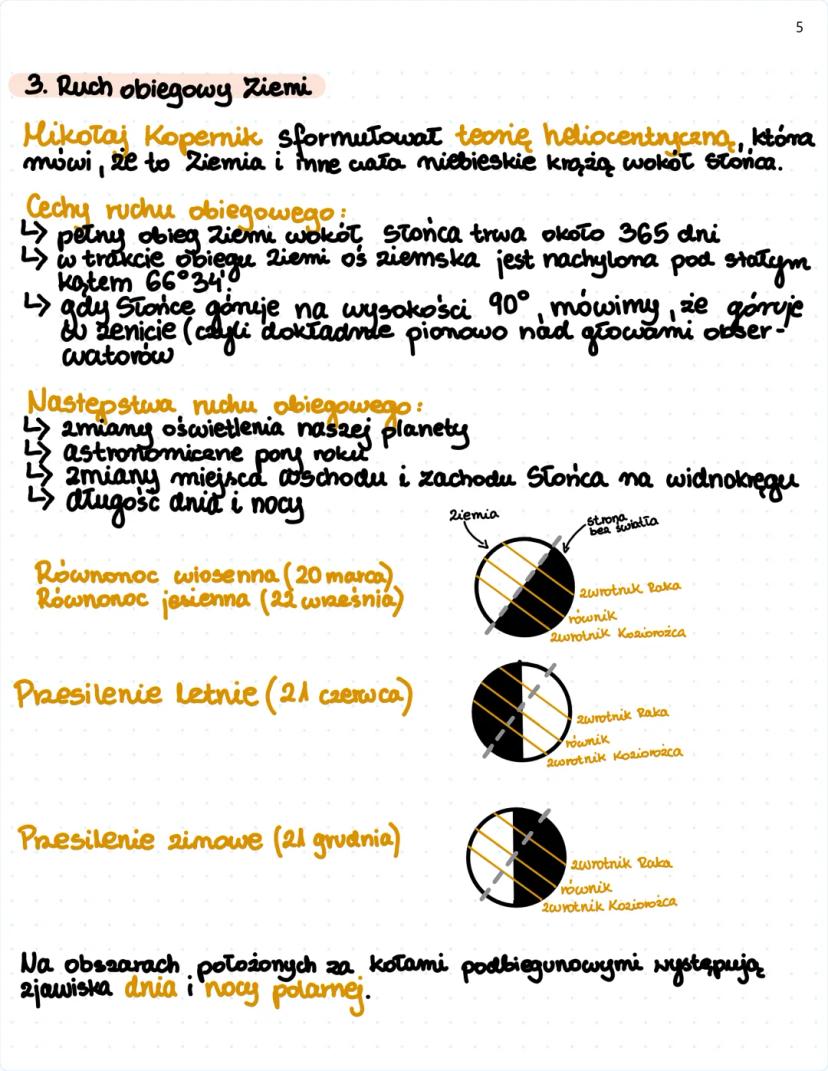 5
3. Ruch obiegowy Ziemi
Mikołaj Kopernik sformułował teorię heliocentryczną, która
mówi, że to Ziemia i inne ciała niebieskie krążą wokół Słońca.
Cechy ruchu obiegowego:
↳ pełny obieg Ziemi wokół Słońca trwa około 365 dni
↳ w trakcie obiegu Ziemi oś ziemska jest nachylona pod stałym
kątem 66°34'.
↳ gdy Słońce góruje na wysokości 90°, mówimy, że góruje
w zenicie (czyli dokładnie pionowo nad głowami obser-
watorów
Następstwa ruchu obiegowego:
↳ zmiany oświetlenia naszej planety
↳ astronomiczne pory roku
↳ zmiany miejsca wschodu i zachodu Słońca na widnokręgu
↳ długość dnia i nocy
Ziemia
strona
bez światła
Równonoc wiosenna (20 marca)
Równonoc jesienna (22 września)
zwrotnik Raka
równik
zwrotnik Koziorożca
Przesilenie letnie (21 czerwca)
zwrotnik Raka
równik
zwrotnik Koziorożca
Przesilenie zimowe (21 grudnia)
zwrotnik Raka
równik
zwrotnik Koziorożca
Na obszarach położonych za kołami podbiegunowymi występują
zjawiska dnia i nocy polarnej.